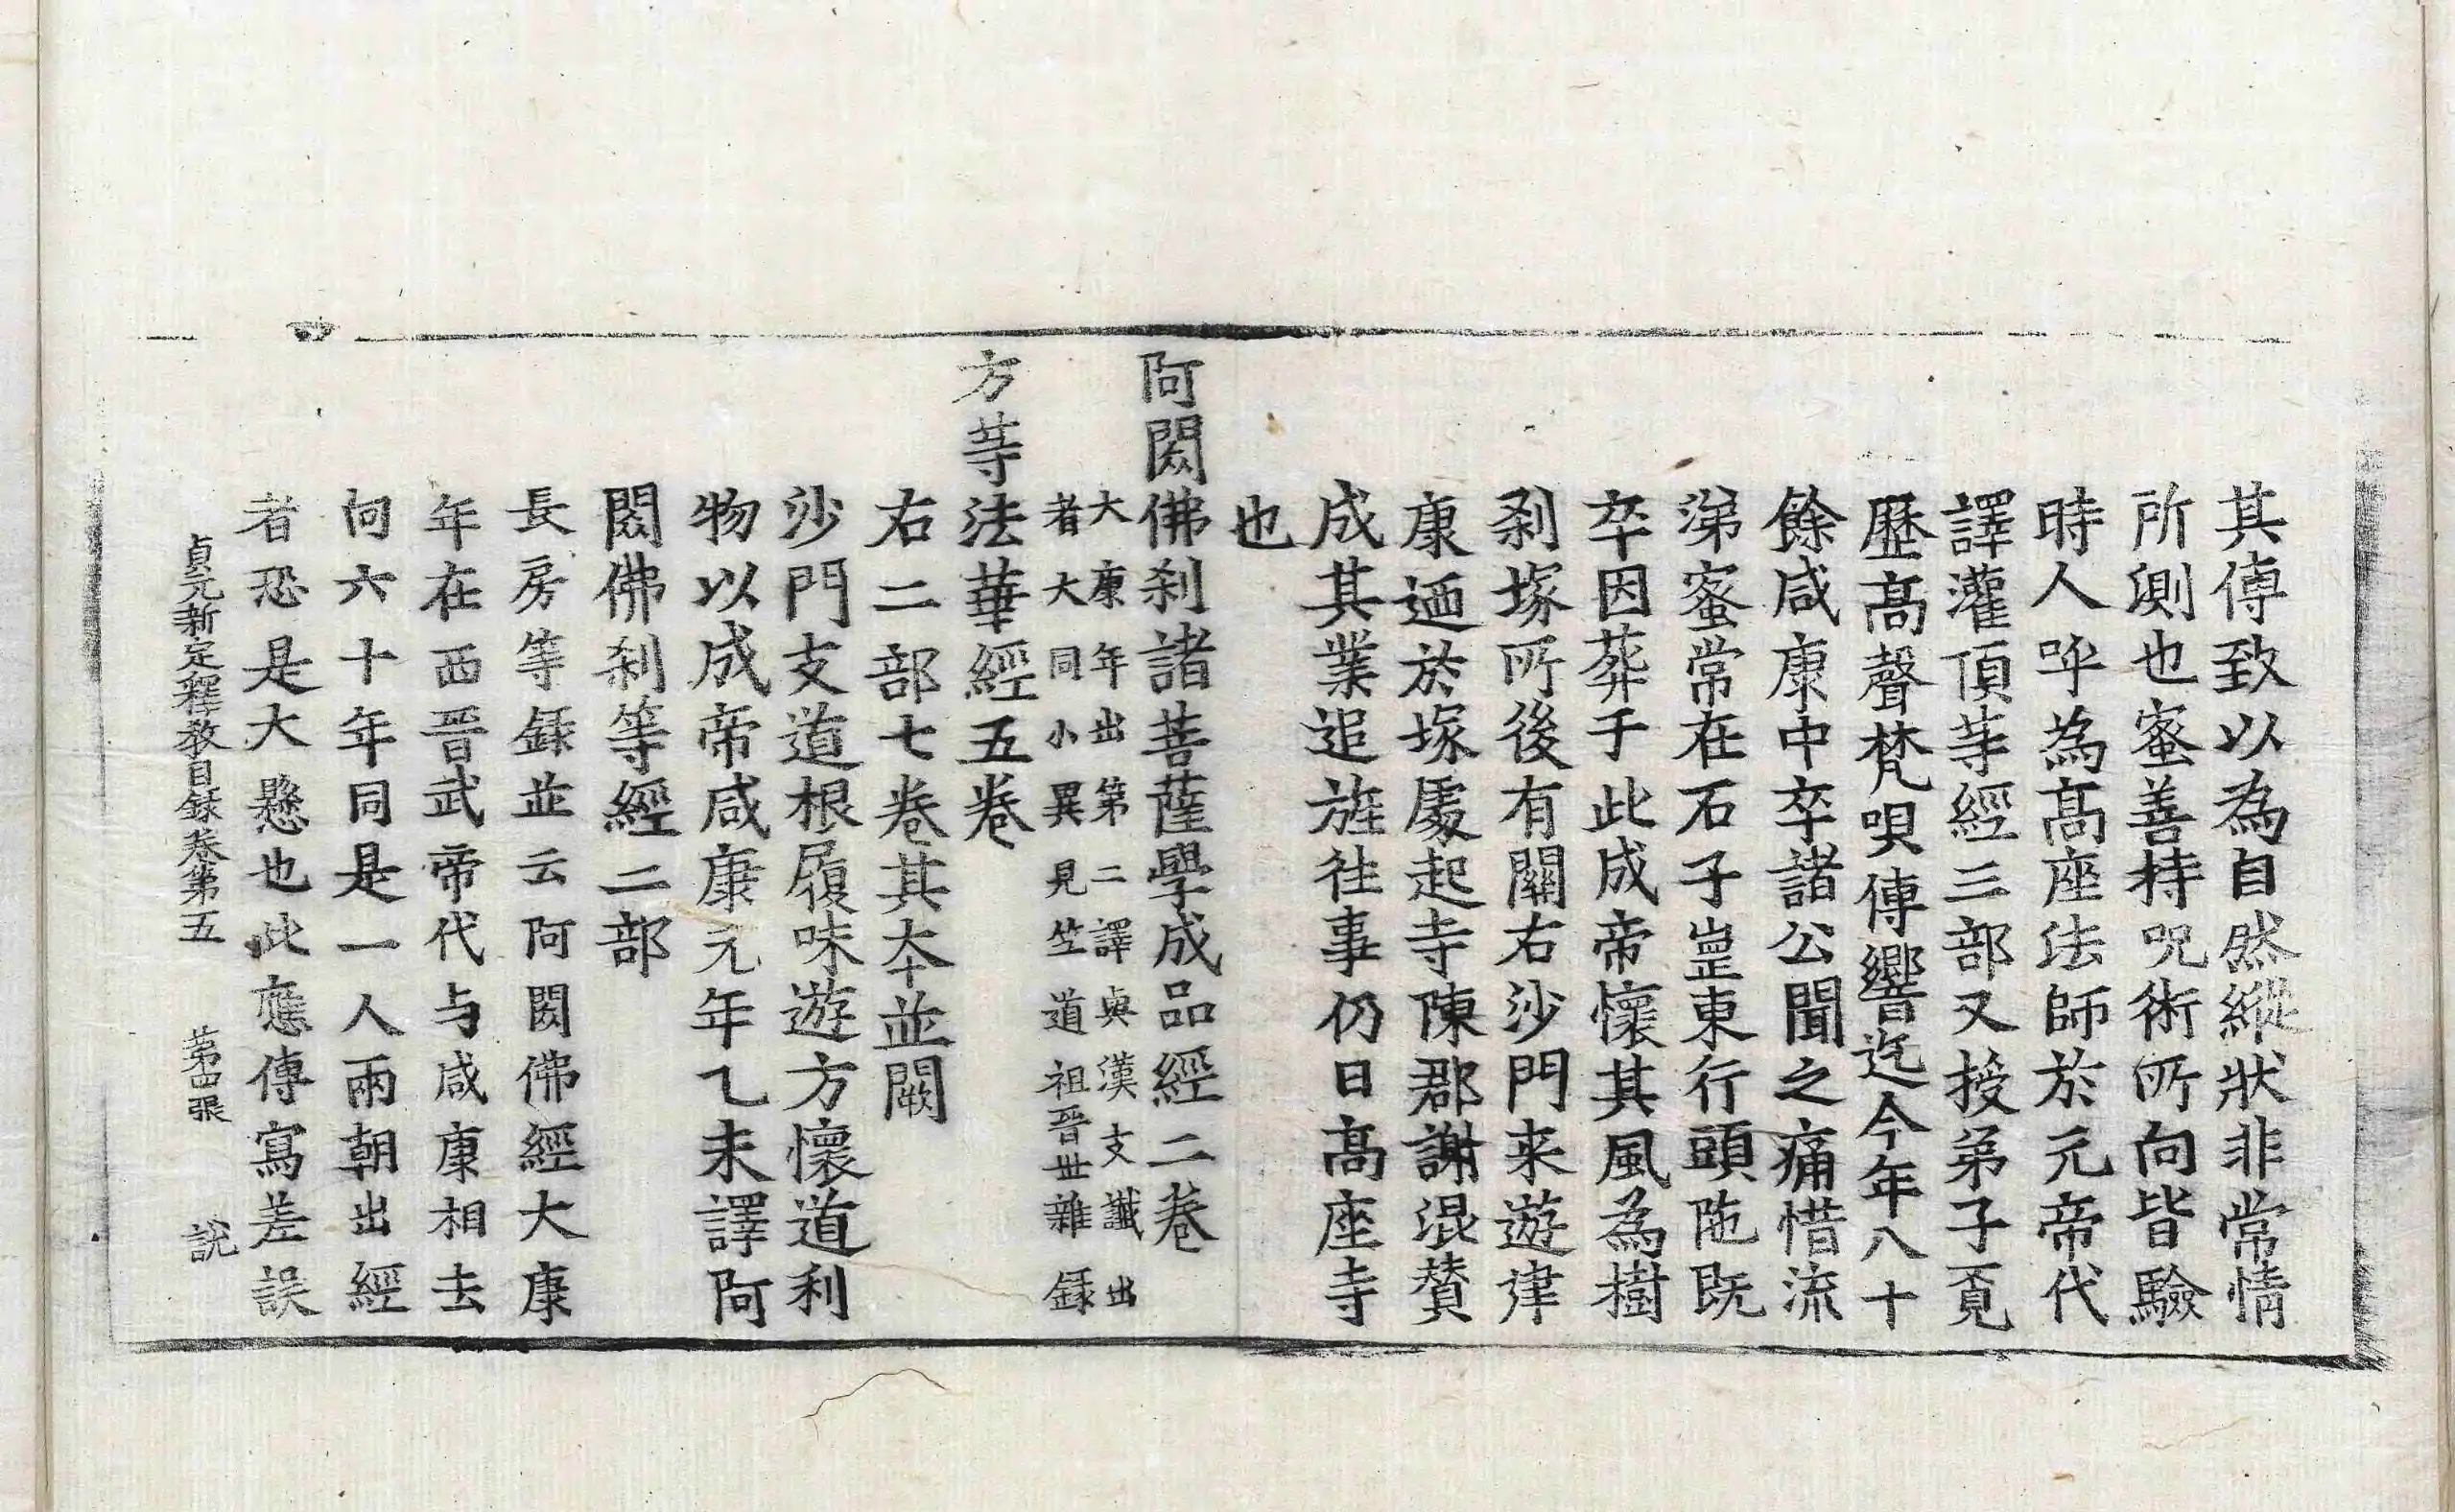 其傳致以為自然縱狀非常情
所測也蜜善持呪術所向皆驗
時人呼為髙座法師於元帝代
譯灌頂䓁經三部又授弟子覔
歷髙聲梵唄傳響迄今年八十
餘咸康中卒諸公聞之痛惜流
涕蜜常在石子崗東行頭陁既
卒因葬于此成帝懷其風為樹
刹塚所後有關右沙門来遊律
康迺於塚處起寺陳郡謝混賛
成其業追旌徃事仍曰髙座寺
也
阿閦佛刹諸菩薩學成品經二卷
大康年出第二譯與漢支讖出
者大同小異見竺道祖晉世雜錄
方䓁法華經五卷
右二部七卷其夲並闕
沙門支道根履味遊方懷道利
物以成帝咸康元年乙未譯阿
閦佛刹等經二部
長房等錄並云阿閦佛經大康
年在西晉武帝代与咸康相去
向六十年同是一人兩朝出經
者恐是大懸也此應傳寫差誤
貞元新定釋教目錄卷第五 苐四張 說